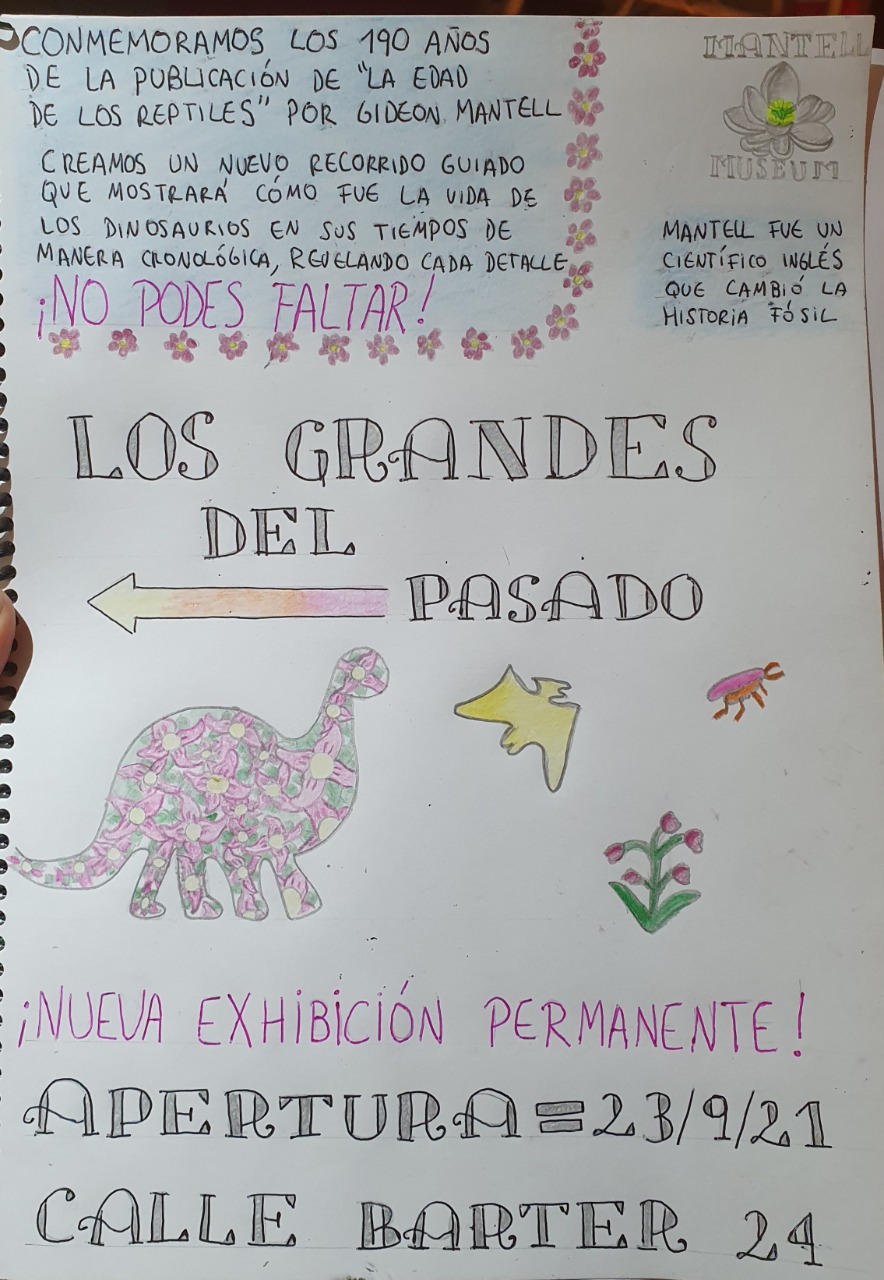 CONMEMORAMOS LOS 190 AÑOS
DE LA PUBLICACIÓN DE "LA EDAD
DE LOS REPTILES" POR GIDEON MANTELL
CREAMOS UN NUEVO RECORRIDO GUIADO
QUE MOSTRARÁ CÓMO FUE LA VIDA DE
LOS DINOSAURIOS EN SUS TIEMPOS DE
MANERA CRONOLÓGICA, REVELANDO CADA DETALLE
¡NO PODES FALTAR!
MANTELL
MUSEUM
MANTELL FUE UN
CIENTÍFICO INGLÉS
QUE CAMBIÓ LA
HISTORIA FÓSIL
LOS GRANDES
DEL
PASADO
¡NUEVA EXHIBICIÓN PERMANENTE!
APERTURA=23/9/21
CALLE BARTER 24